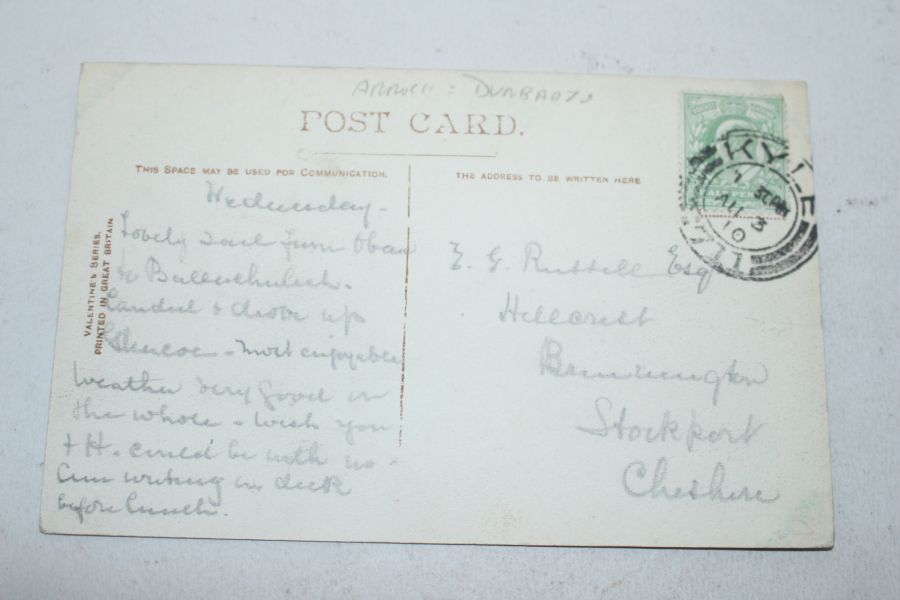 ARROCH = DUNBARTS
POST CARD.
THIS SPACE MAY BE USED FOR COMMUNICATION.
THE ADDRESS TO BE WRITTEN HERE
VALENTINE'S SERIES.
PRINTED IN GREAT BRITAIN
Wednesday -
Lovely sail from Oban
to Ballachulish.
Landed & drove up
Glencoe - most enjoyable
Weather very good on
the whole - Wish you
& H. could be with us -
Am writing on deck
before lunch.
E. G. Russell Esq
Hillcrest
Bramington
Stockport
Cheshire
KYLE
AU 3
10